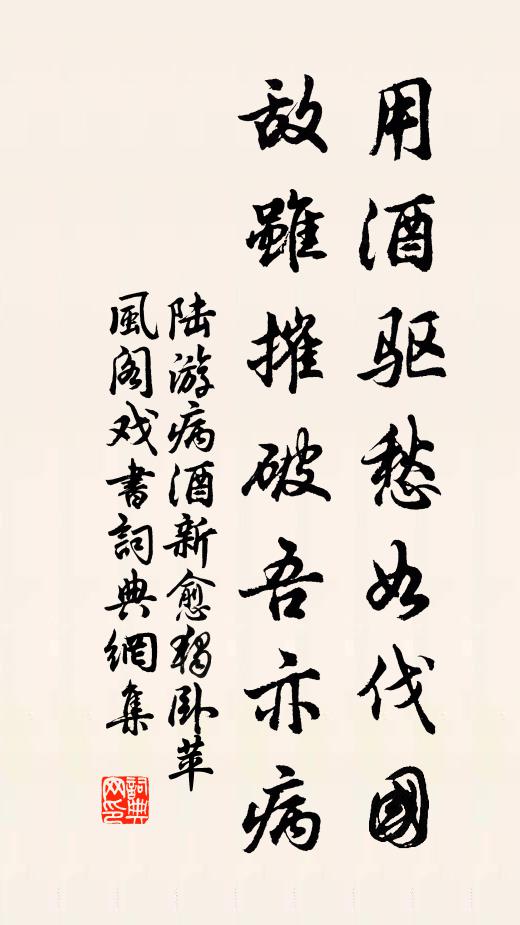 用酒驱愁如伐國
敌雖摧破吾亦病
陆游病酒新愈獨卧苹
風阁戏書詞典網集
詞典网印